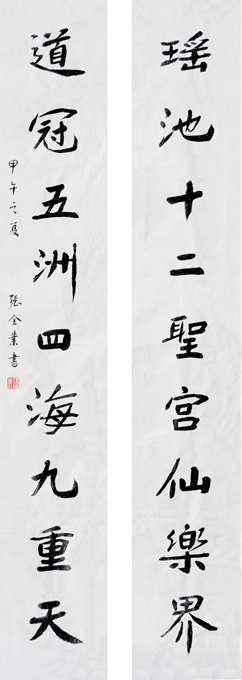 瑶池十二聖宫仙樂界
道冠五洲四海九重天
甲午之夏 張金業書